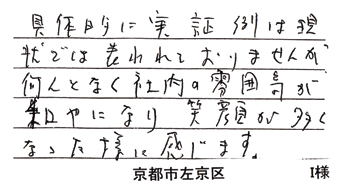 具体的に実証例は現
状では表われておりませんが
何んとなく社内の雰囲気が
和やかになり 笑顔が多く
なった様に感じます。
京都市左京区 I様